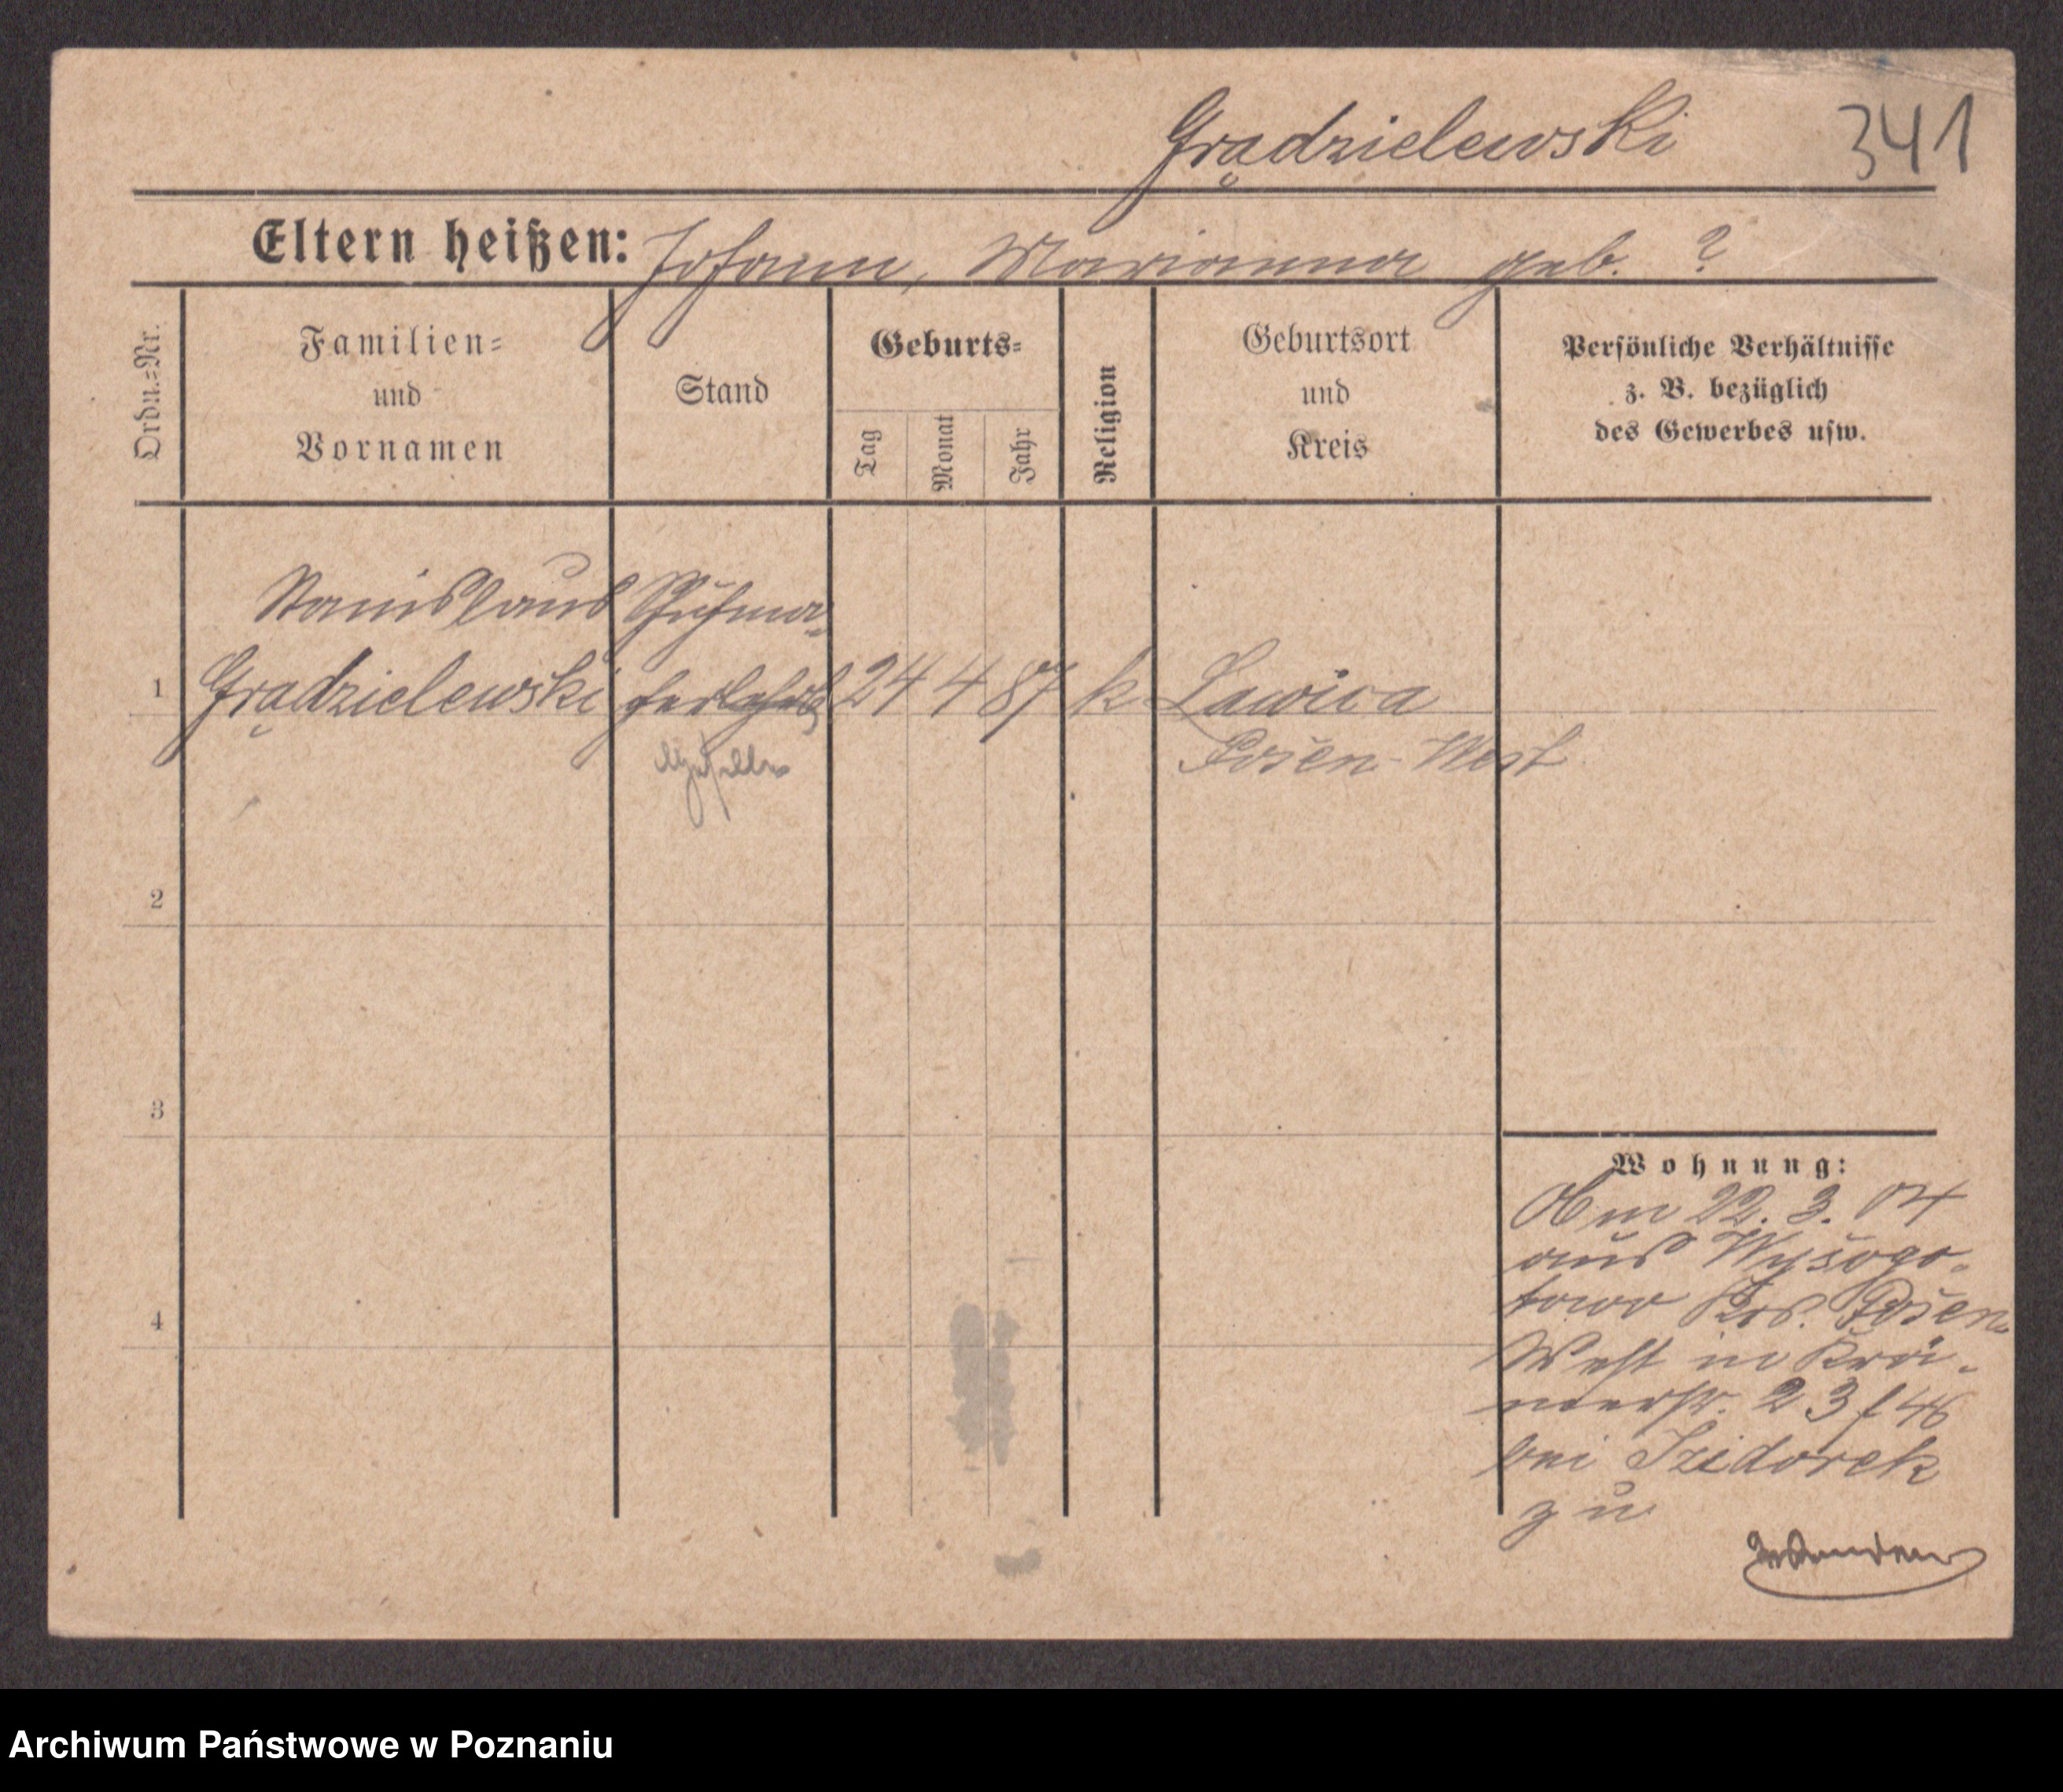 Grądzielewski 341
Eltern heißen: Johann, Marianna geb. ?
Ordn.=Nr.
Familien=
und
Vornamen
Stand
Geburts=
Tag
Monat
Jahr
Religion
Geburtsort
und
Kreis
Persönliche Verhältnisse
z. B. bezüglich
des Gewerbes usw.
Stanislaus Schuhma-
1 Grądzielewski cherlehrlg 24 4 87 k Lawica
Geselle Posen-West
2
3
4
Wohnung:
Am 22. 3. 04
aus Wysogo-
towo Krs. Posen-
West in Krä-
merstr. 23 f 46
bei Izidorek
zu
Archiwum Państwowe w Poznaniu